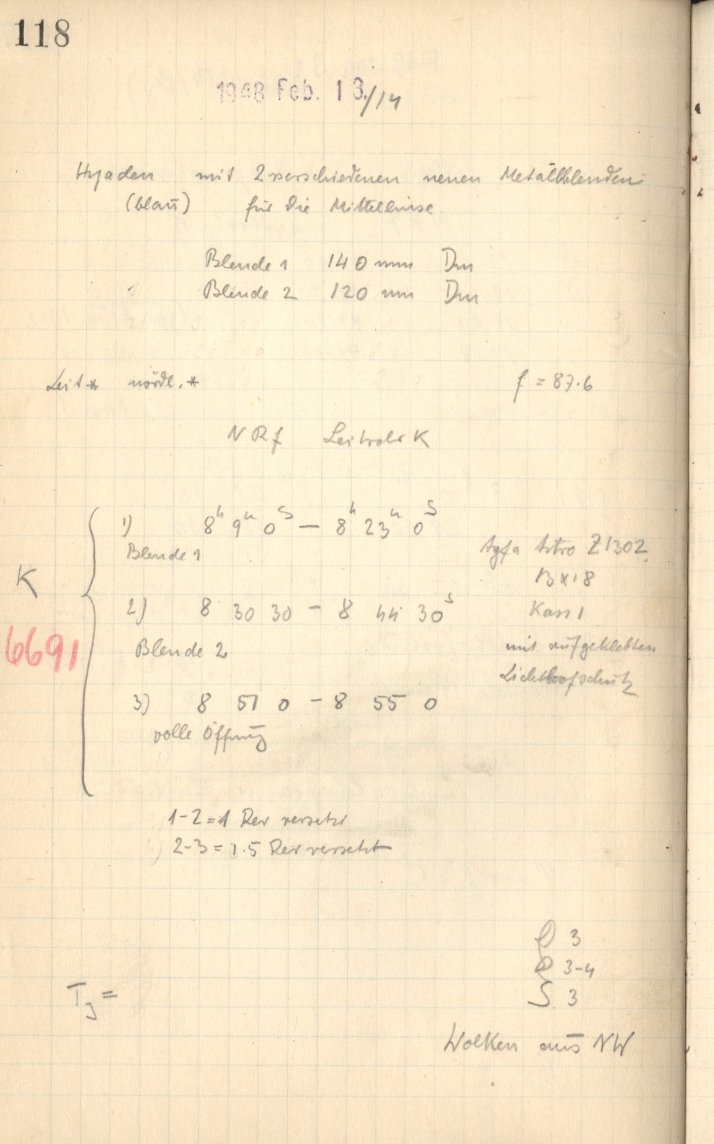 118
1948 Feb. 13./14
Hyaden mit 2 verschiedenen neuen Metallblenden
(blau) für die Mittellinse
Blende 1 140 mm Dm
Blende 2 120 mm Dm
Leit* nördl. * f = 87.6
N R f Leitrohr K
1) 8h 9m 0s — 8h 23m 0s
Blende 1
Agfa Astro Z1302
13 x 18
K
2) 8 30 30 — 8 44 30s
Kass 1
6691
Blende 2
mit aufgeklebten
Lichthofschutz
3) 8 51 0 — 8 55 0
volle Öffnung
1-2 = 1 Rev versetzt
2-3 = 1.5 Rev versetzt
3
3-4
S 3
TJ =
Wolken aus NW